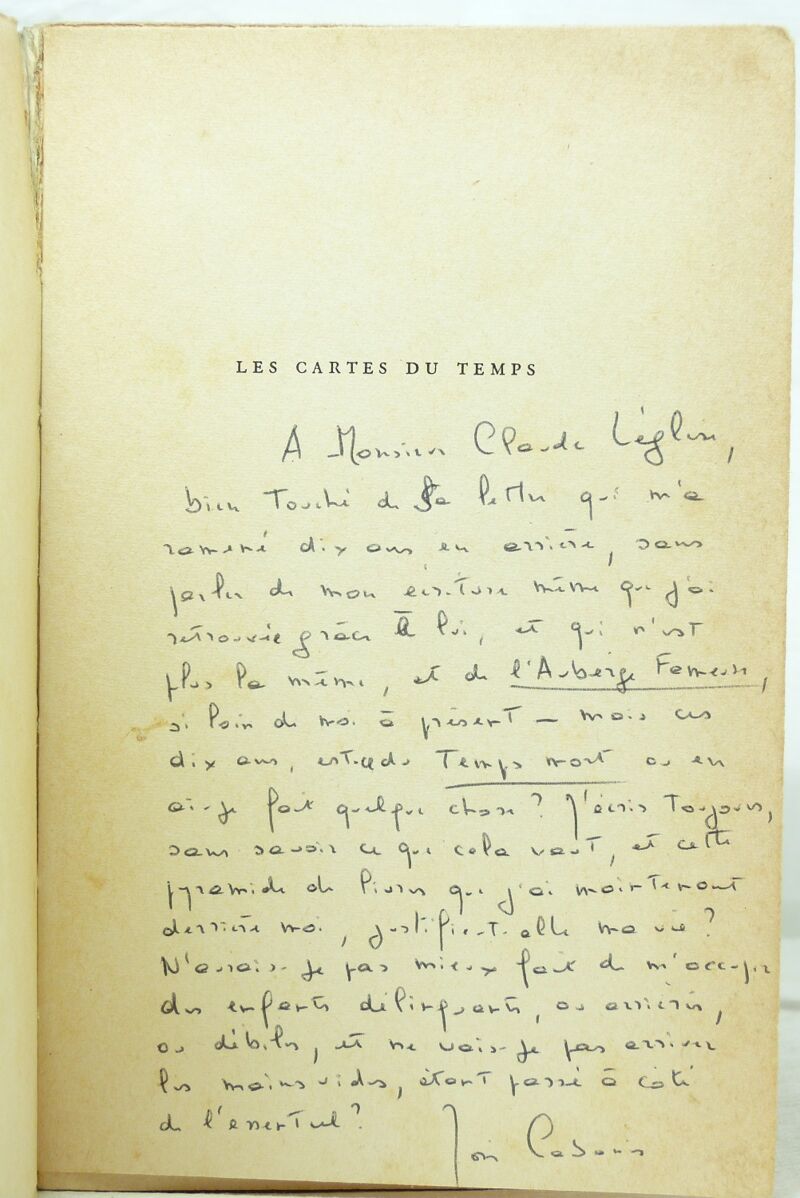 LES CARTES DU TEMPS
A Monsieur Claude Léglise,
bien touché de sa lettre qui m'a
ramené dix ans en arrière, sans
parler de mon écriture même que j'ai
retrouvée grâce à lui, et qui n'est
plus la même, et de l'Auberge Fameuse,
si loin de moi à présent — mais ces
dix ans, est-ce du Temps mort ou en
ai-je fait quelque chose ? J'écris toujours,
sans savoir ce que cela vaut, et cette
pyramide de livres que j'ai maintenant
derrière moi, justifie-t-elle ma vie ?
N'aurais-je pas mieux fait de m'occuper
des enfants délinquants, ou arriérés,
ou débiles, et ne vais-je pas arriver
les mains vides, étant passé à côté
de l'essentiel ?
José Cabanis